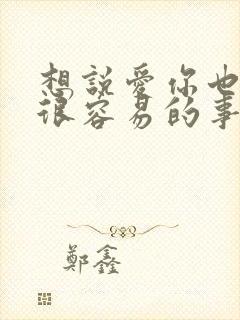 想說愛你也
很容易的事
鄭鑫